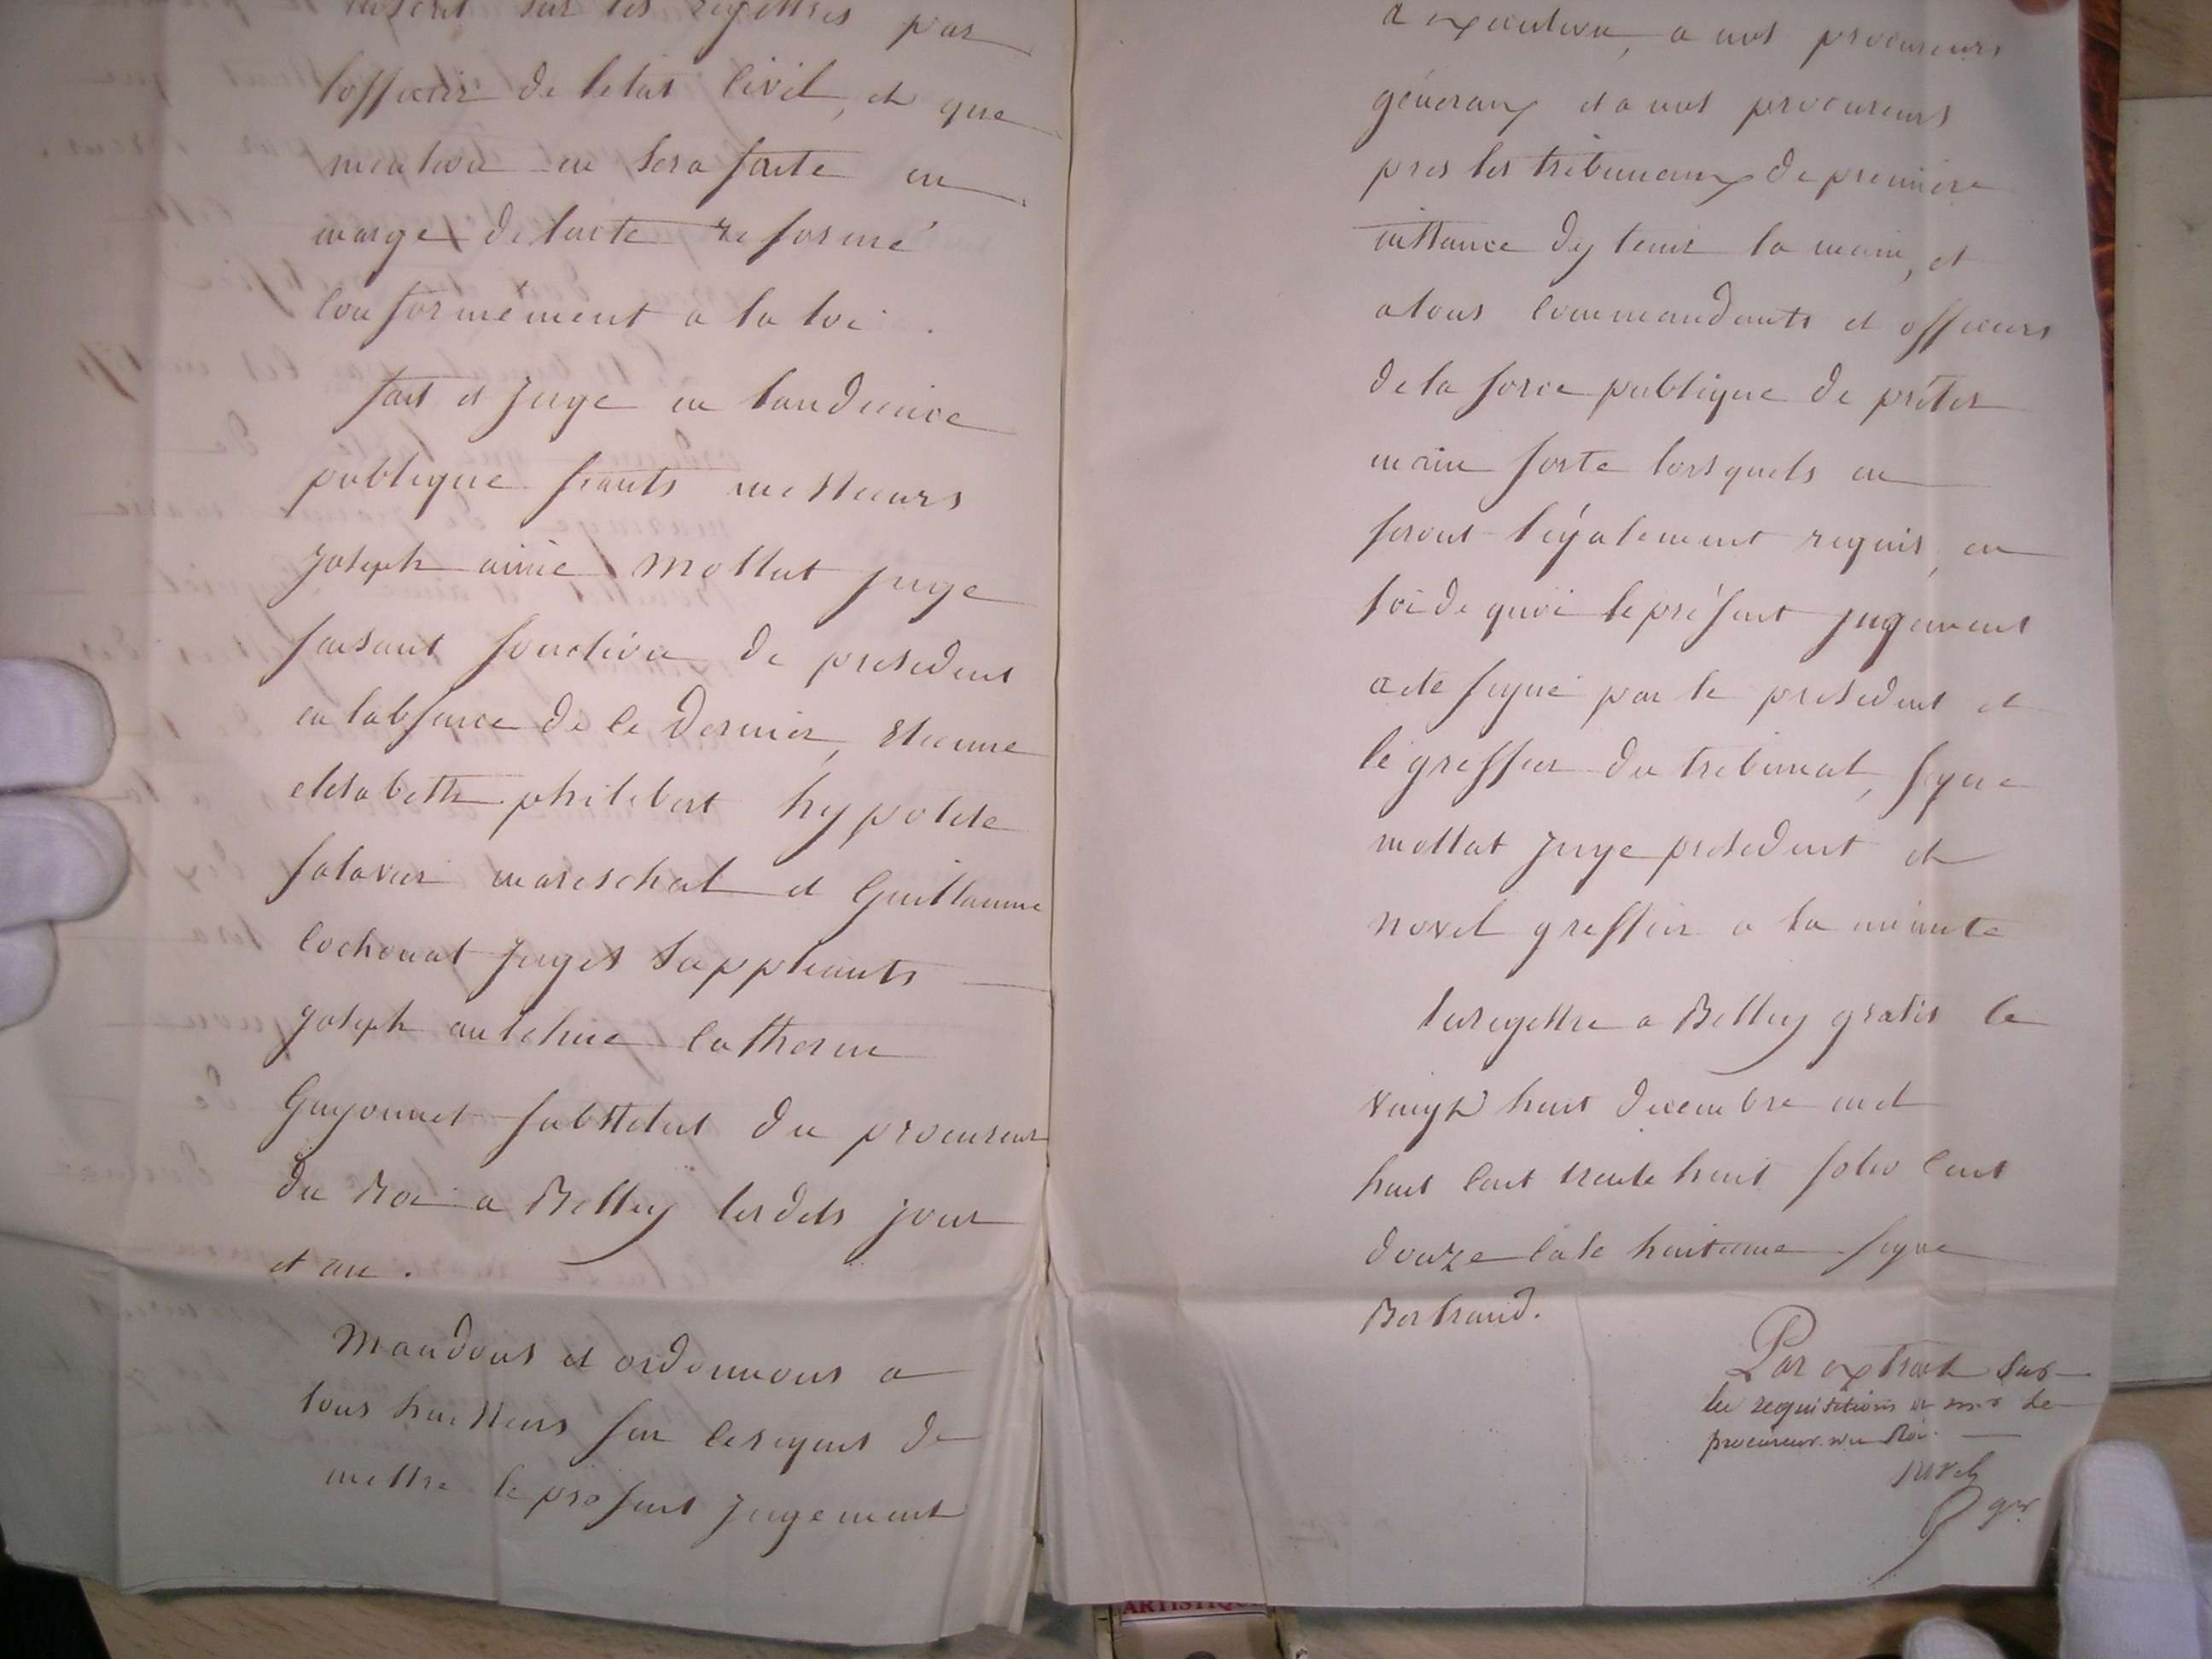 inscrit sur les registres par
lofficier de letat civil, et que
mention en sera faite en
marge de lacte reformé
conformément a la loi.
fait et Jugé en laudience
publique seants messieurs
Joseph aimé Mollat juge
faisant fonction de president
en labsence de ce dernier, Etienne
elisabeth philibert hypolite
salavin mareschal et Guillaume
Cochonat Juges suppleants
Joseph anthelme Catherin
Guyonnet substitut du procureur
du Roi a Belley lesdits jour
et an.
Mandons et ordonnons a
tous huissiers sur ce requis de
mettre le présent Jugement
a execution, a nos procureurs
généraux et a nos procureurs
pres les tribunaux de premiere
instance dy tenir la main, et
a tous commandants et officiers
de la force publique de prêter
main forte lorsquels en
seront légalement requis, en
foi de quoi le présent jugement
a ete signé par le president et
le greffier du tribunal, signé
mollat Juge president et
novel greffier a la minute
Enregistré a Belley gratis le
vingt huit decembre mil
huit cent trente huit folio cent
douze case huitieme signé
Bertrand.
Par extrait sur
les requisitions de mr le
procureur du Roi.
novel
gr
ARTISTIQUE